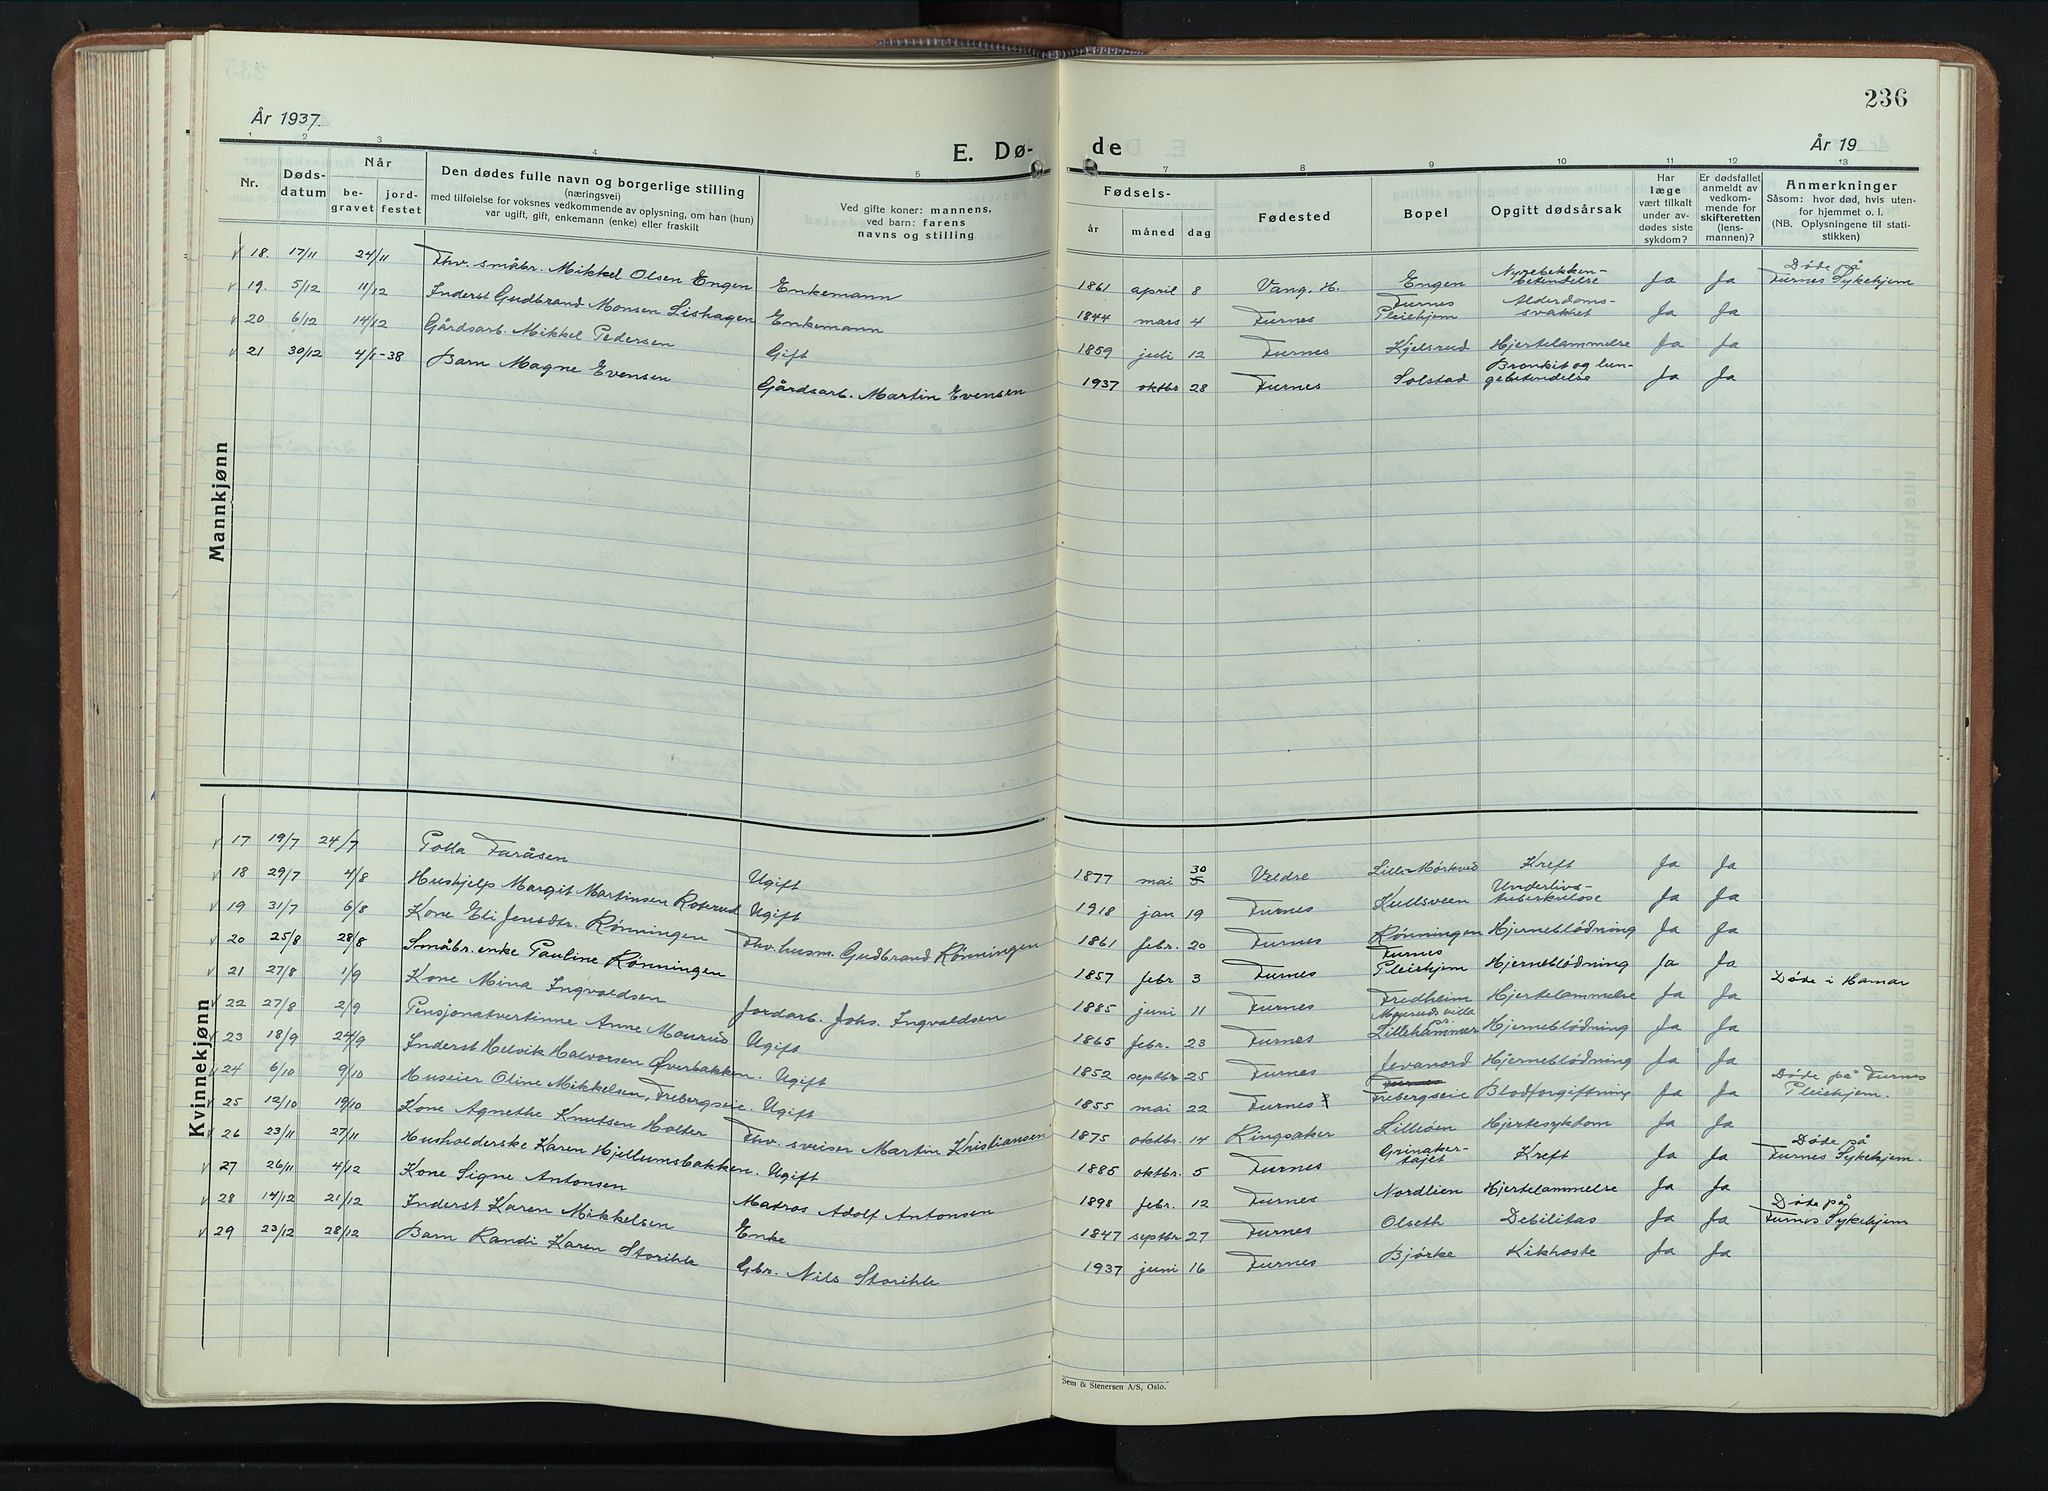 236
År 1937.
E. Dø-
de
År 19
1 2 3 4 5 7 8 9 10 11 12 13
Nr.
Døds-
datum
Når
be-
gravet
jord-
festet
Den dødes fulle navn og borgerlige stilling
(næringsvei)
med tilføielse for voksnes vedkommende av oplysning, om han (hun)
var ugift, gift, enkemann (enke) eller fraskilt
Ved gifte koner: mannens,
ved barn: farens
navns og stilling
Fødsels-
år måned dag
Fødested
Bopel
Opgitt dødsårsak
Har
læge
vært tilkalt
under av-
dødes siste
sykdom?
Er dødsfallet
anmeldt av
vedkom-
mende for
skifteretten
(lens-
mannen)?
Anmerkninger
Såsom: hvor død, hvis uten-
for hjemmet o. l.
(NB. Oplysningene til stati-
stikken)
Mannkjønn
18. 17/11 24/11 Fhv. småbr. Mikkel Olsen Engen Enkemann 1861 april 8 Vang, H. Engen Nyrebekken-betendelse Ja Ja Døde på Furnes Sykehjem
19. 5/12 11/12 Inderst Gudbrand Monsen Lishagen Enkemann 1844 mars 4 Furnes Furnes Pleiehjem Alderdoms-svakhet Ja Ja
20 6/12 14/12 Gårdsarb. Mikkel Pedersen Gift 1859 juli 12 Furnes Kjelsrud Hjertelammelse Ja Ja
21 30/12 4/1-38 Barn Magne Evensen Gårdsarb. Martin Evensen 1937 oktbr 28 Furnes Solstad Bronkit og lun-gebetendelse Ja Ja
Kvinnekjønn
17 19/7 24/7 Polla Faråsen Ugift 1877 mai 30 Veldre Lille Mørkved Kreft Ja Ja
18 29/7 4/8 Hushjelp Margit Martinsen Roserud Ugift 1918 jan 19 Furnes Kullsveen Underlivs-tuberkulose Ja Ja
19 31/7 6/8 Kone Eli Jensdtr. Rønningen Fhv. husm. Gudbrand Rønningen 1861 febr. 20 Furnes Rønningen Hjerneblødning Ja Ja
20 25/8 28/8 Småbr. enke Pauline Rønningen 1857 febr 3 Furnes Furnes Pleiehjem Hjerneblødning Ja Ja Døde i Hamar
21 27/8 1/9 Kone Mina Ingvaldsen Jordarb. Johs. Ingvaldsen 1885 juni 11 Furnes Fredheim Hjertelammelse Ja Ja
22 27/8 2/9 Pensjonatvertinne Anne Mourud Ugift 1865 febr. 23 Furnes villa Lillehammer Hjerneblødning Ja Ja
23 18/9 24/9 Inderst Helvik Halvorsen Øverbakken. Ugift 1852 septbr 25 Furnes Jevanord Hjerneblødning Ja Ja
24 6/10 9/10 Huseier Oline Mikkelsen, Frebergseie. Ugift 1855 mai 22 Furnes Furnes Frebergseie Blodforgiftning Ja Ja Døde på Furnes Pleiehjem.
25 12/10 19/10 Kone Agnethe Knutsen Holter Fhv. sveiser Martin Kristiansen 1875 oktbr. 14 Ringsaker Lilleøen Hjertesykdom Ja Ja
26 23/11 27/11 Husholderske Karen Hjellumsbakken. Ugift 1885 oktbr. 5 Furnes Grinaker-tajet Kreft Ja Ja Døde på Furnes Sykehjem.
27 26/11 4/12 Kone Signe Antonsen Matros Adolf Antonsen 1898 febr. 12 Furnes Nordlien Hjertelammelse Ja Ja
28 14/12 21/12 Inderst Karen Mikkelsen Enke 1847 septbr 27 Furnes Olseth Debilitas Ja Ja Døde på Furnes Sykehjem
29 23/12 28/12 Barn Randi Karen Storihle Gbr. Nils Storihle 1937 juni 16 Furnes Bjørke Kikhoste Ja Ja
Sem & Stenersen A/S, Oslo.